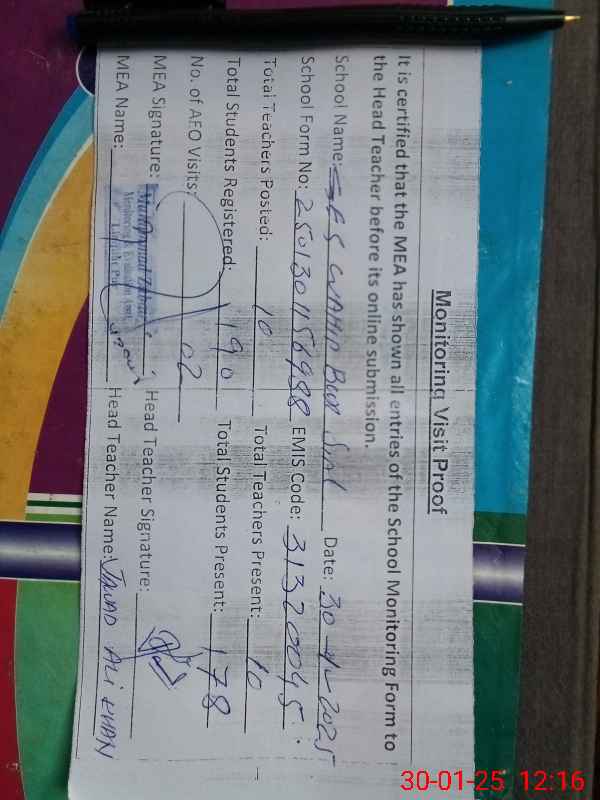 Monitoring Visit Proof
It is certified that the MEA has shown all entries of the School Monitoring Form to
the Head Teacher before its online submission.
School Name: GES WAHID BUX SIAL Date: 30-1-2025
School Form No: EMIS Code: 31320045
Total Teachers Posted: 10 Total Teachers Present: 10
Total Students Registered: 190 Total Students Present: 178
No. of AEO Visits: 02
MEA Signature: Head Teacher Signature:
MEA Name: Head Teacher Name: JAWAD ALI KHAN
Muhammad
Monitoring & Evaluation
30-01-25 12:16